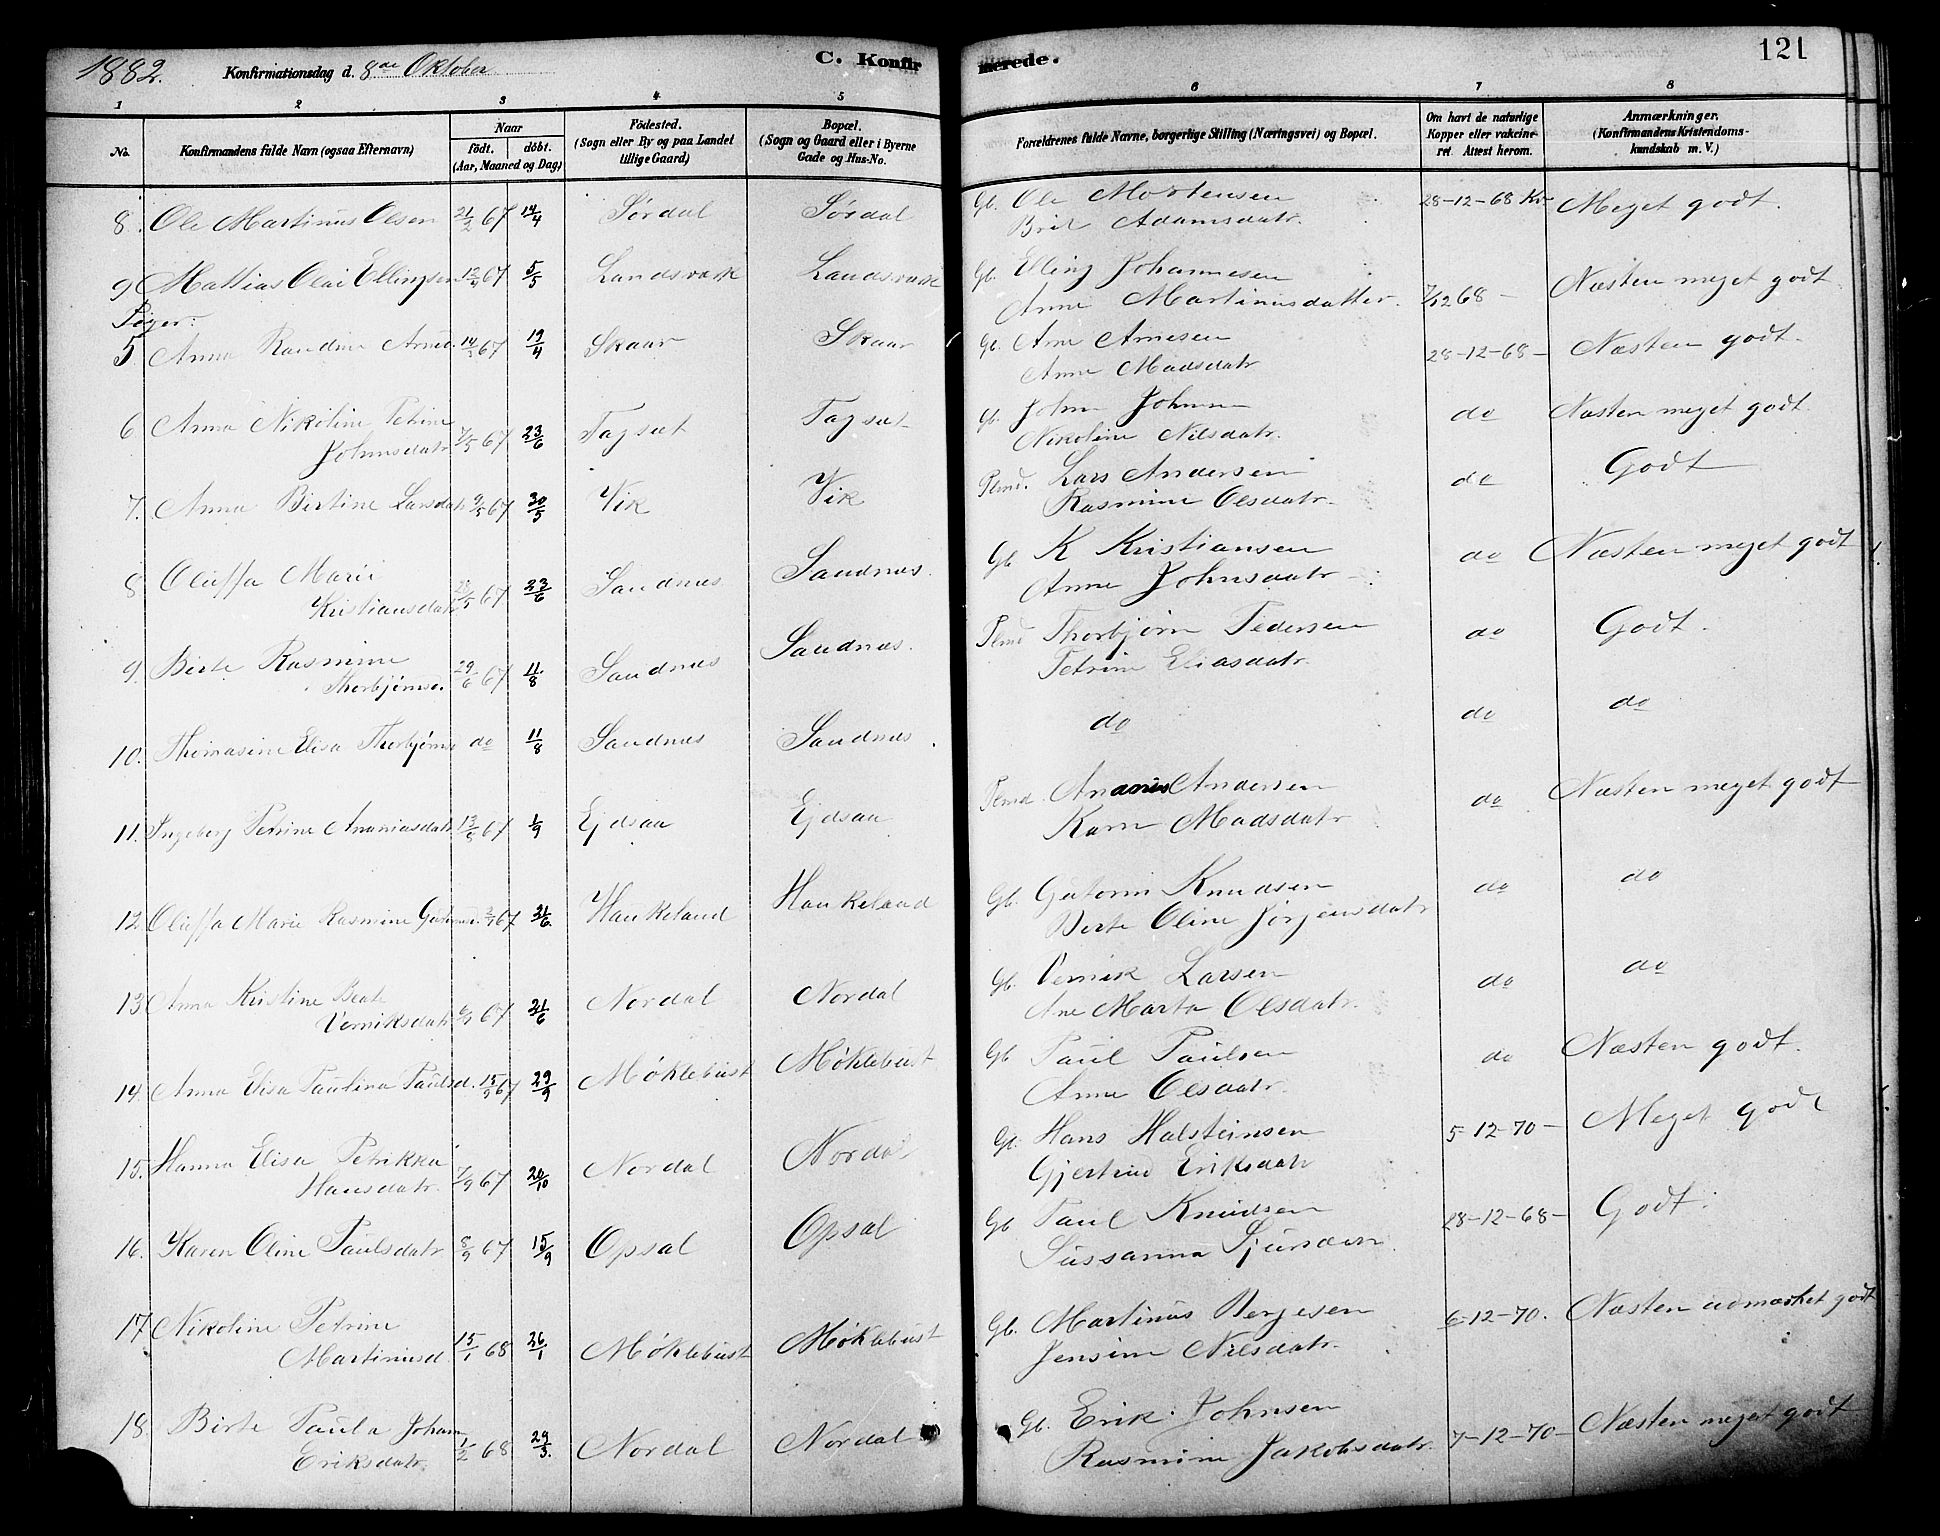 1882. Konfirmationsdag d. 8de Oktober C. Konfirmerede. 121
1 2 3 4 5 6 7 8
No. Konfirmandens fulde Navn (ogsaa Efternavn) Naar født. døbt. (Aar, Maaned og Dag) Fødested. (Sogn eller By og paa Landet tillige Gaard) Bopæl. (Sogn og Gaard eller i Byerne Gade og Hus-No. Forældrenes fulde Navne, borgerlige Stilling (Næringsvei) og Bopæl. Om havt de naturlige Kopper eller vakcineret. Attest herom. Anmærkninger. (Konfirmandens Kristendomskundskab m. V.)
8. Ole Martinus Olsen 21/2 67 14/4 Sørdal Sørdal Gb. Ole Mortensen 28-12-68 Meget godt.
Brit Adamsdatr.
9 Mattias Olai Ellingsen 67 5/5 Landsvark Landsvark Gb. Elling Johannesen Næsten meget godt.
Anne Martinusdatter. 7/12 68 -
Piger:
5 Anna Randine Arned. 14/3 67 19/4 Skaar Skaar Gb. Arne Arnesen 28-12-68- Næsten godt.
Anne Madsdatr
6 Anna Nikoline Petrine 7/5 67 23/6 Tagsæt Tagsæt Gb. John Johnsen do Næsten meget godt.
Johnsdatr Nikoline Nilsdatr.
7. Anna Birtine Larsdatr 9/5 67 30/5 Vik Vik Plmd. Lars Andersen do Godt
Rasmine Olsdatr.
8 Oluffa Marie 67 23/6 Sandnæs Sandnæs. Gb K Kristiansen do Næsten meget godt
Kristiansdatr Anne Johnsdatr
9. Birte Rasmine 29/6 67 11/8 Sandnæs Sandnæs. Plmd Thorbjørn Pedersen do Godt.
Thorbjørnsd. Petrine Eliasdatr.
10. Thomasine Elisa Thorbjørnsd do 11/8 Sandnæs Sandnæs. do do do
11. Ingeborg Petrine Ananiasdatr 13/8 67 1/9 Ejdsaa Ejdsaa Plmd. Ananias Andersen do Næsten meget godt
Karn Madsdatr
12. Oluffa Marie Rasmine 67 21/6. Haukeland Haukeland Gb. Gutorm Knudsen do do
Berte Oline Jørgensdatr
13. Anna Kristine Beate 67 21/6 Nordal Nordal Gb. Vemik Larsen do do
Vemiksdatr Ane Marta Olsdatr.
14. Anna Elisa Paulina Paulsd. 15/9 67 29/9 Møklebust Møklebust Gb Paul Paulsen do Næsten godt.
Anne Olsdatr.
15. Hanna Elisa Petrikka 7/9 67 20/10 Nordal Nordal Gb. Hans Halsteinsen 5-12-70- Meget godt
Hansdatr. Gjertrud Eriksdatr
16. Karen Oline Paulsdatr 8/9 67 15/9 Opsal Opsal Gb Paul Knudsen 28-12-68- Godt.
Sussanna
17. Nikoline Petrine 15/1 68 26/1 Møklebust Møklebust Gb. Martinus Børgesen 6-12-70. Næsten udmærket godt
Martinusd. Jensine Nilsdatr.
18. Birte Paula Johan 68 29/3. Nordal Nordal Gb. Erik Johnsen 7-12-70- Næsten meget godt
Eriksdatr. Rasmine Jakobsdatr.